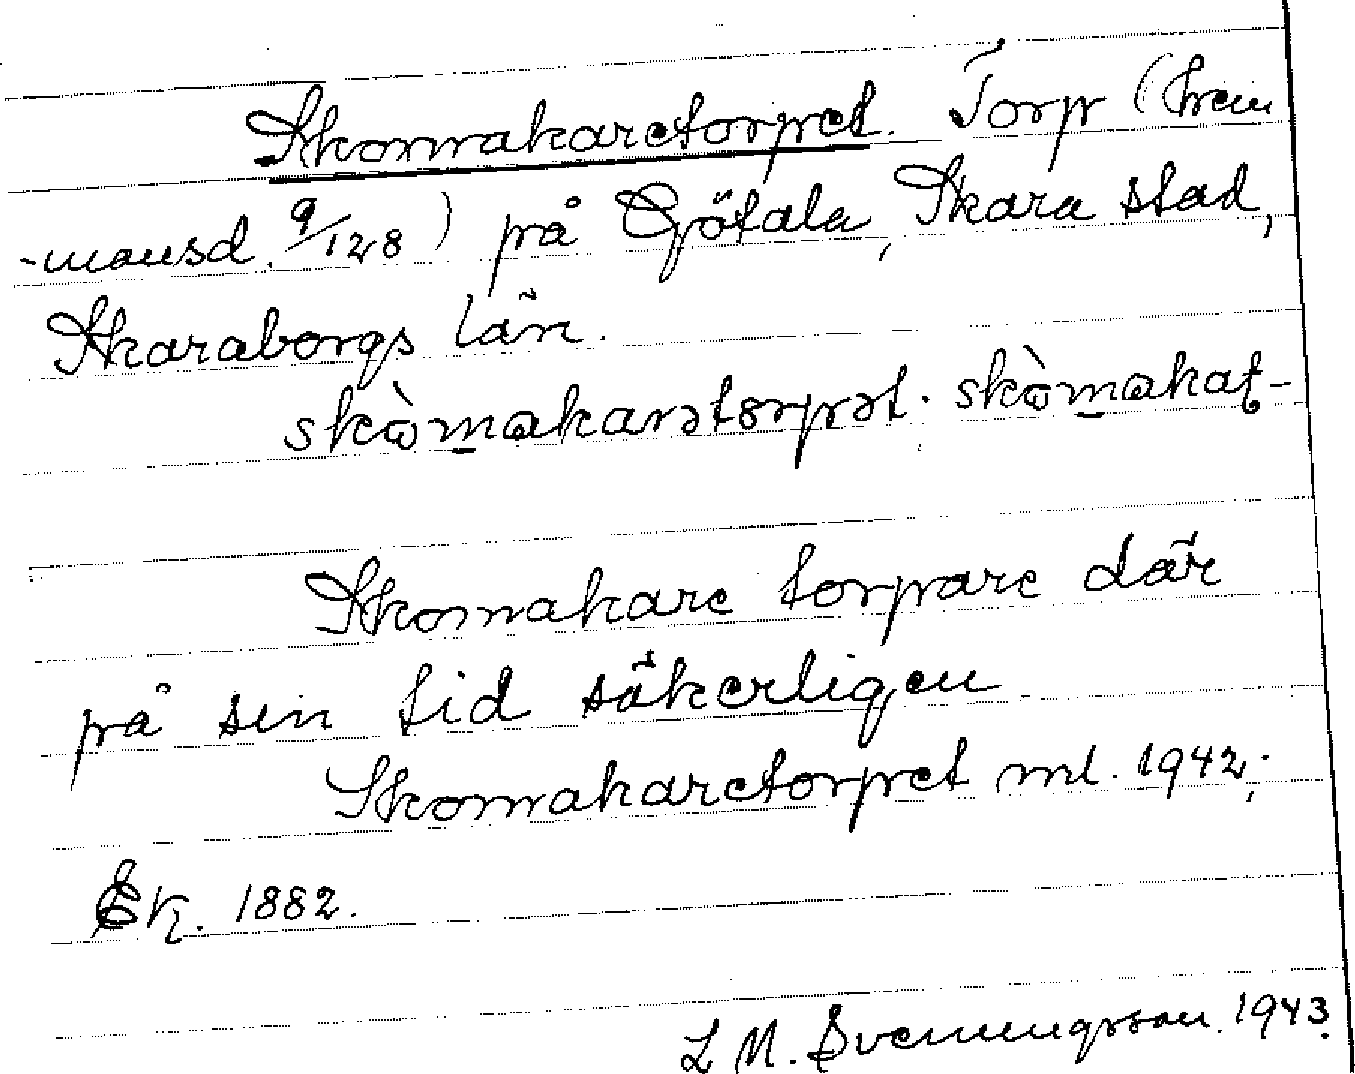 Skomakaretorpet. Torp (hem
-mansd. 9/128) på Götala, Skara stad,
Skaraborgs län.
skòmakarətorpət. skòmakat-
Skomakare torpare där
på sin tid säkerligen
Skomakaretorpet ml. 1942;
Ek. 1882.
L M. Svenungsson. 1943.